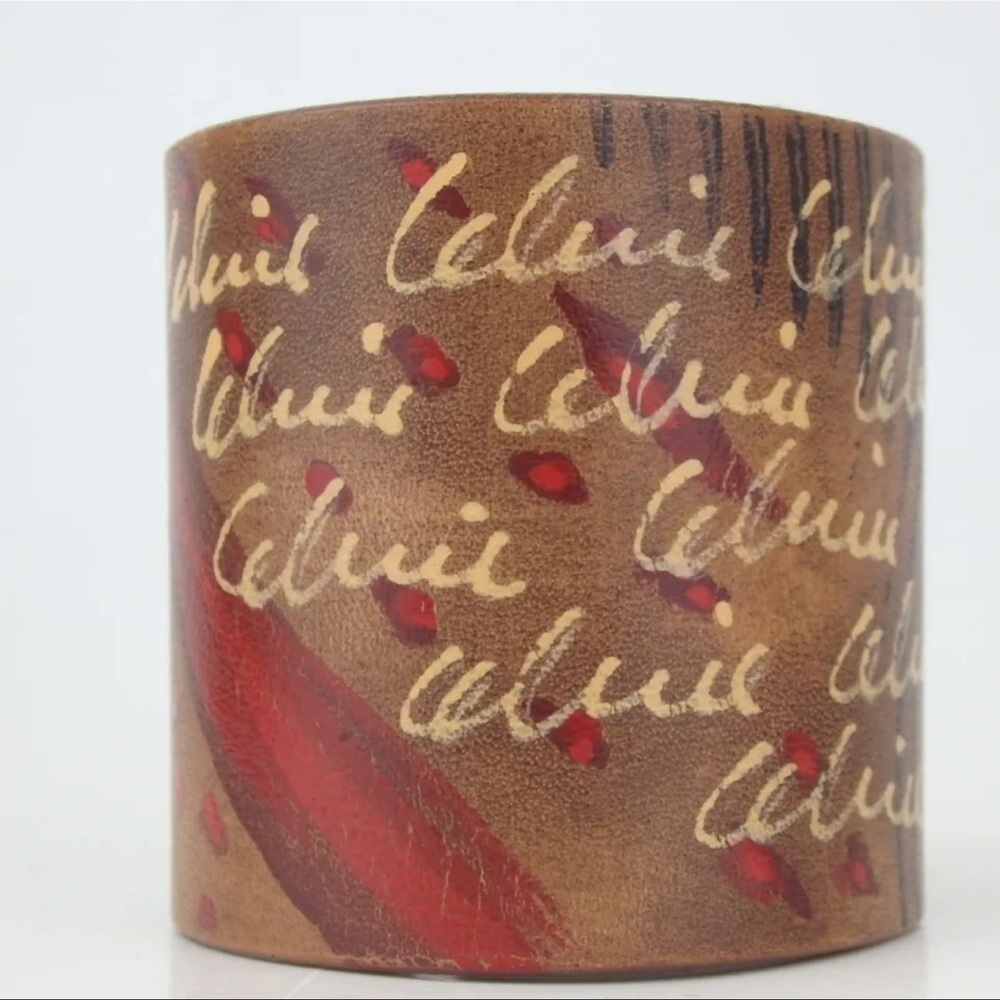 Celine Celine Celine
Celine Celine
Celine Celine
Celine
Celine